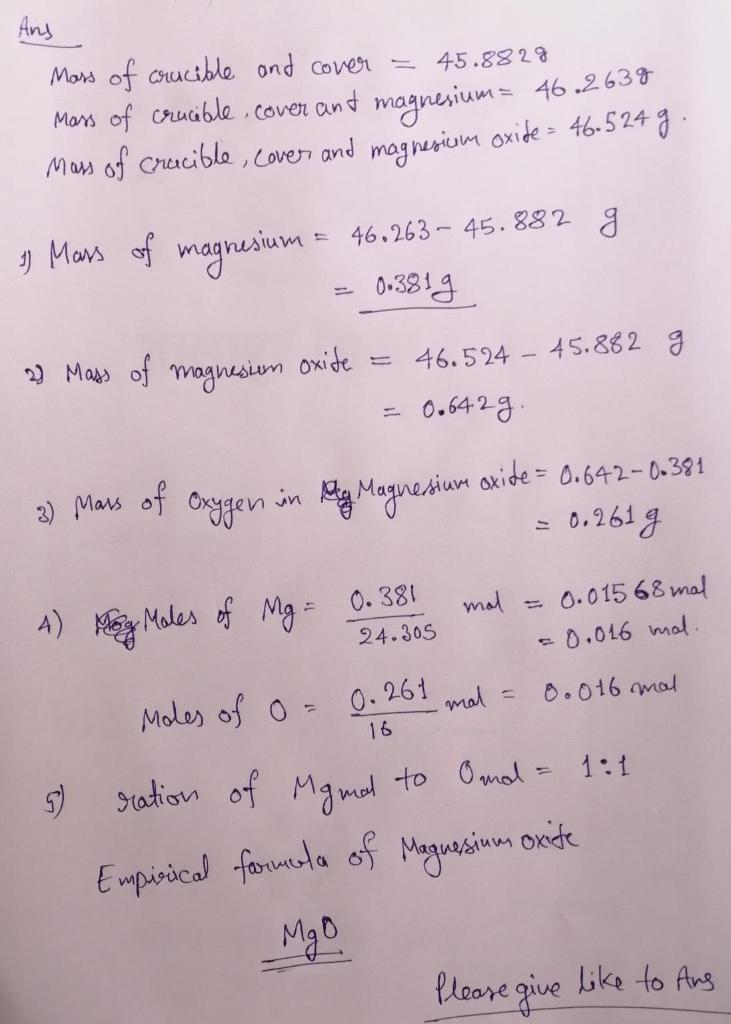 Ans
Mass of crucible and cover = 45.882g
Mass of crucible, cover and magnesium = 46.263g
Mass of crucible, cover and magnesium oxide = 46.524 g.
1) Mass of magnesium = 46.263 - 45.882 g
= 0.381g
2) Mass of magnesium oxide = 46.524 - 45.882 g
= 0.642g.
3) Mass of Oxygen in Magnesium oxide = 0.642-0.381
= 0.261 g
4) Moles of Mg = 0.381/24.305 mol = 0.01568 mol
= 0.016 mol.
Moles of O = 0.261/16 mol = 0.016 mol
5) ration of Mg mol to O mol = 1:1
Empirical formula of Magnesium oxide
MgO
Please give like to Ans